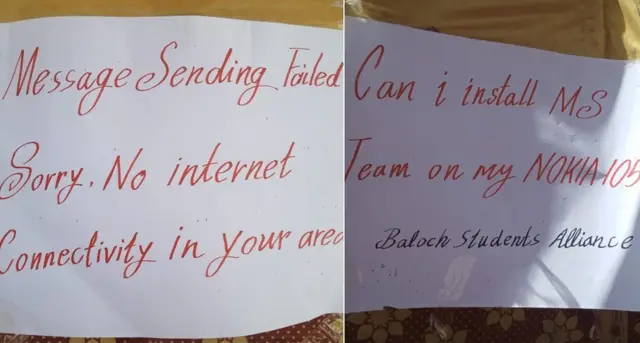 Message Sending Failed
Sorry. No internet
Connectivity in your area
Can i install MS
Team on my NOKIA 105
Baloch Students Alliance